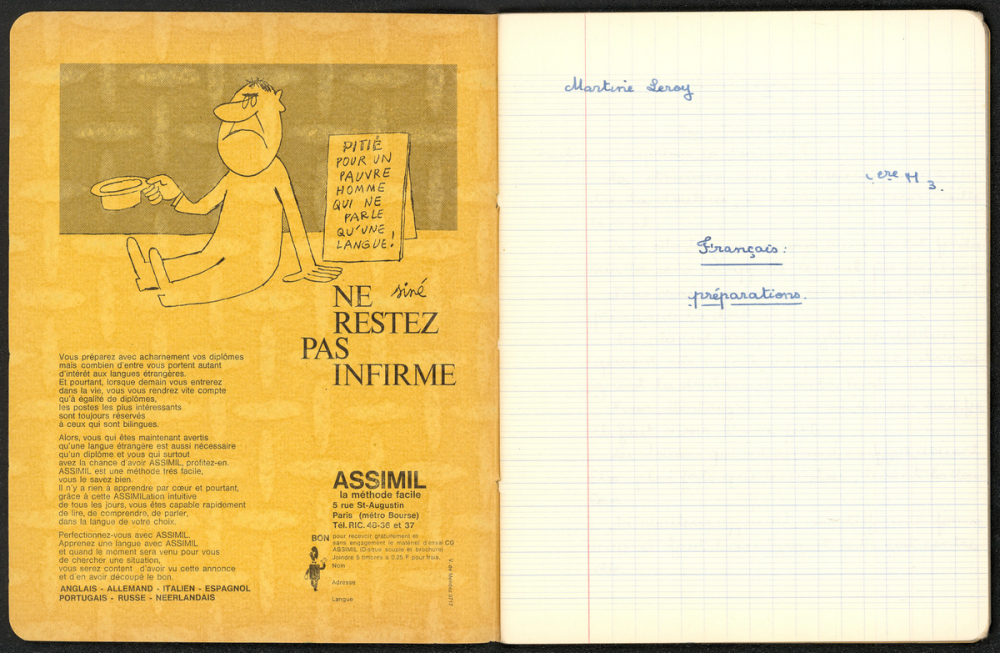 PITIÉ
POUR UN
PAUVRE
HOMME
QUI NE
PARLE
QU'UNE
LANGUE!
siné
NE
RESTEZ
PAS
INFIRME
Vous préparez avec acharnement vos diplômes
mais combien d'entre vous portent autant
d'intérêt aux langues étrangères.
Et pourtant, lorsque demain vous entrerez
dans la vie, vous vous rendrez vite compte
qu'à égalité de diplômes,
les postes les plus intéressants
sont toujours réservés
à ceux qui sont bilingues.
Alors, vous qui êtes maintenant avertis
qu'une langue étrangère est aussi nécessaire
qu'un diplôme et vous qui surtout
avez la chance d'avoir ASSIMIL, profitez-en.
ASSIMIL est une méthode très facile,
vous le savez bien.
Il n'y a rien à apprendre par cœur et pourtant,
grâce à cette ASSIMILation intuitive
de tous les jours, vous êtes capable rapidement
de lire, de comprendre, de parler,
dans la langue de votre choix.
Perfectionnez-vous avec ASSIMIL.
Apprenez une langue avec ASSIMIL
et quand le moment sera venu pour vous
de chercher une situation,
vous serez content d'avoir vu cette annonce
et d'en avoir découpé le bon.
ANGLAIS - ALLEMAND - ITALIEN - ESPAGNOL
PORTUGAIS - RUSSE - NEERLANDAIS
ASSIMIL
la méthode facile
5 rue St-Augustin
Paris (métro Bourse)
Tél. RIC. 46-36 et 37
BON pour recevoir gratuitement et
sans engagement le matériel d'essai CG
ASSIMIL (Disque souple et brochure)
Joindre 5 timbres à 0,25 F pour frais.
Nom
Adresse
Langue
Martine Leroy
1ere M 3.
Français:
préparations.